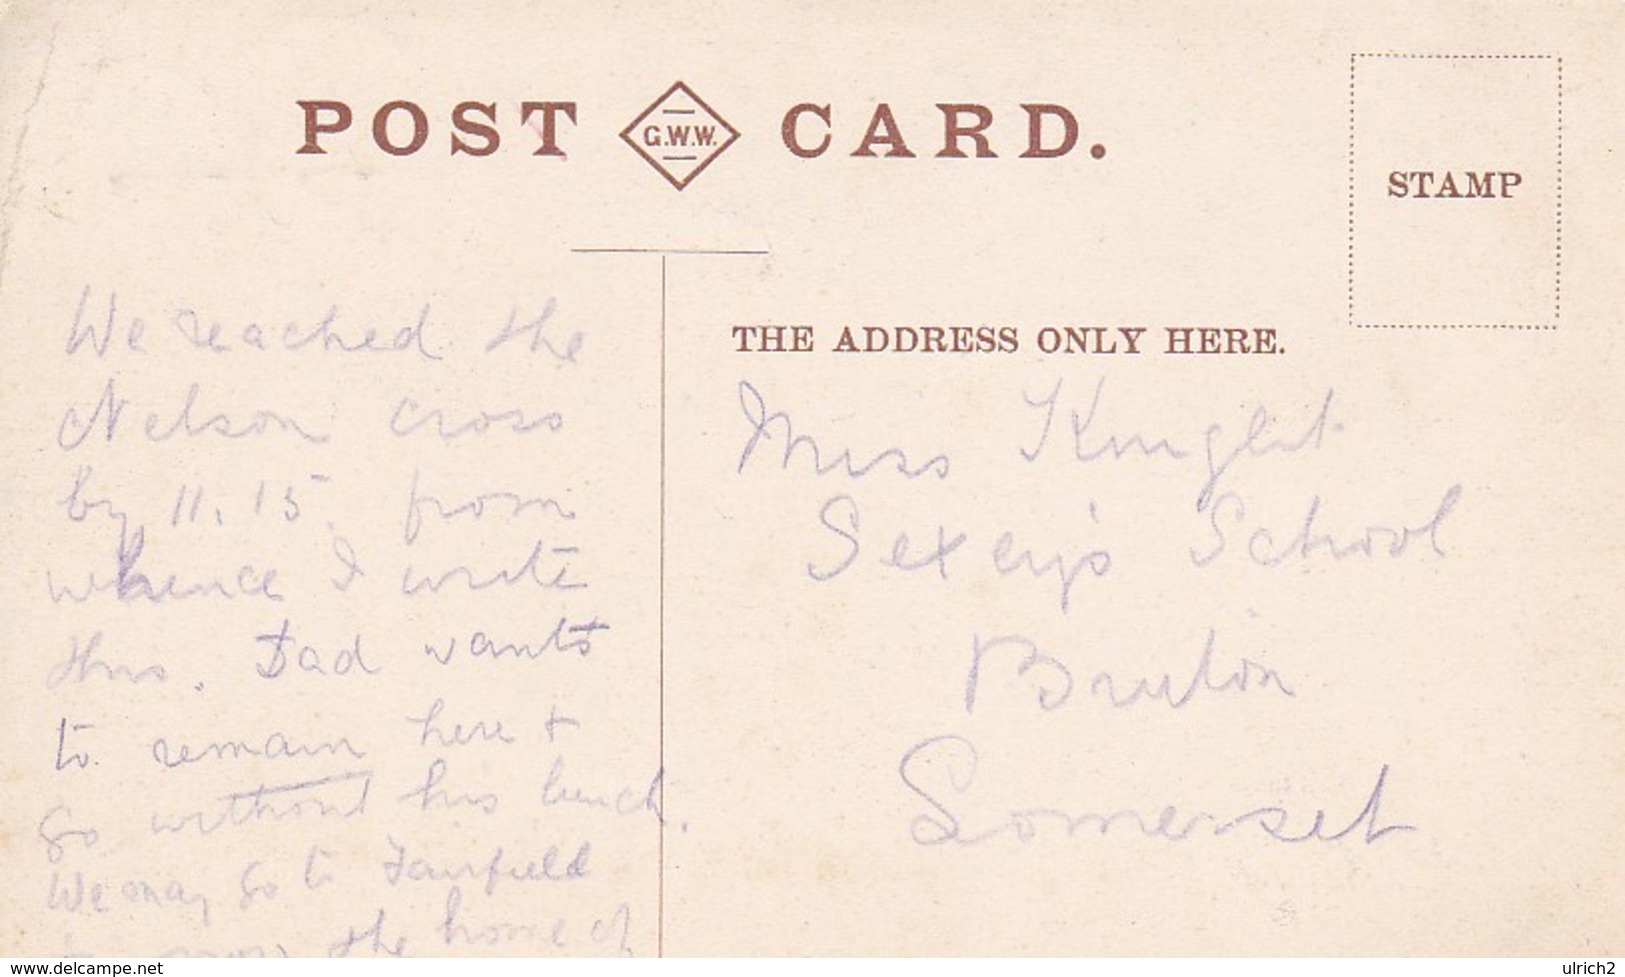 POST G.W.W. CARD.
STAMP
THE ADDRESS ONLY HERE.
We reached the
Nelson cross
by 11.15. from
whence I write
this. Dad wants
to remain here +
go without his lunch.
We may go to Fairfield
the home of
Miss Knight
Sexey's School
Bruton
Somerset
delcampe.net
ulrich2